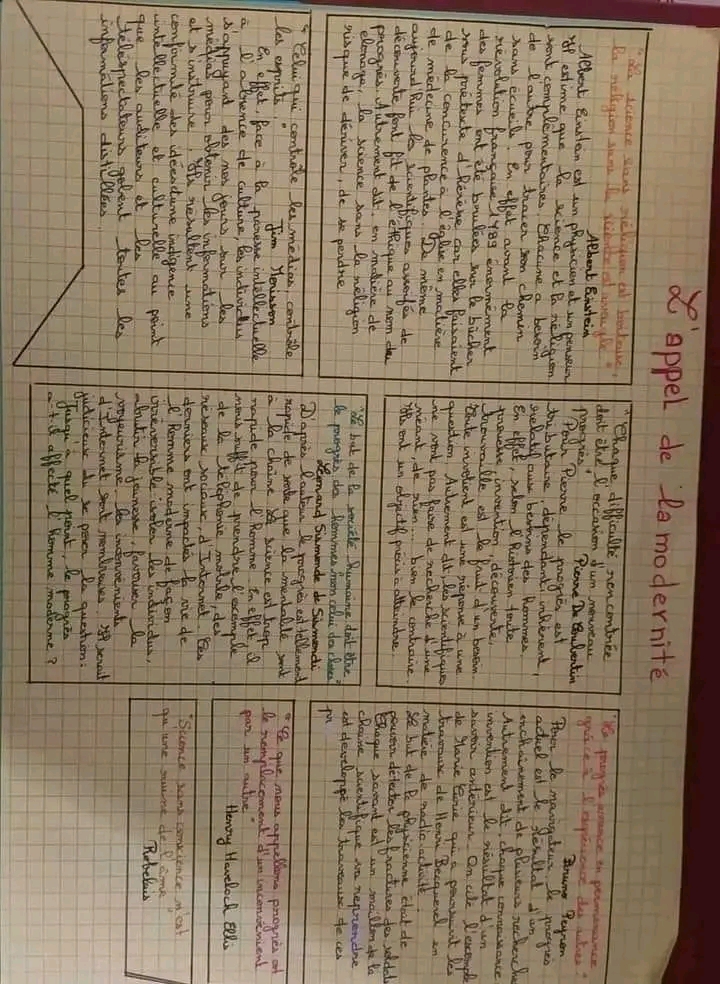 L'appel de la modernité
"La science sans religion est boiteuse,
la religion sans la science est aveugle".
Albert Einstein
Albert Einstein est un physicien et un penseur
Il estime que la science et la religion
sont complémentaires. Chacune a besoin
de l'autre pour tracer son chemin
sans écueils. En effet avant la
révolution française 1789 énormément
des femmes ont été brulées sur le bûcher
sous prétexte d'hérésie car elles faisaient
de la concurence à l'église en matière
de médecine de plantes. De même
aujourd'hui les scientifiques assoifés de
découverte font fit de l'éthique au nom du
progrès. Autrement dit, en matière de
clonage, la science sans la religion
risque de dériver, de se perdre
"Celui qui contrôle les médias contrôle
les esprits".
Jim Morisson
En effet, face à la paresse intellectuelle
à l'absence de culture, les individus
s'appuyant des nos jours sur les
médias pour obtenir les informations
et s'instruire. Ils resultent une
conformité des idées d'une indigence
intellectuelle et culturelle au point
que les auditeurs et les
téléspectateurs gobent toutes les
informations distillées.
"Chaque difficulté rencontrée
doit être l'occasion d'un nouveau
progrès."
Pierre De Coubertin
Pour Pierre le progrès est
tributaire, dépendant, inhérent,
relatif aux besoins des hommes.
En effet, selon l'historien toute
prouesse, invention, découverte,
trouvaille est le fruit d'un besoin.
Toute invention est une réponse à une
question. Autrement dit, les scientifiques
ne vont pas faire de recherche d'une
néant, de rien... bien le contraire.
Ils ont un objectif précis à atteindre.
"Le but de la société humaine doit être
le progrès des hommes non celui des choses"
Léonard Sismonde de Sismondi
D'après l'auteur le progrès est tellement
rapide de sorte que la mentalité soit
à la chaîne La science est trop
rapide pour l'homme. En effet il
nous suffit de prendre l'exemple
de la téléphonie mobile, des
réseaux sociaux, d'Internet. Ces
derniers ont impactés la vie de
l'Homme moderne de façon
irréversible: isoler les individus,
abrutir la jeunesse, favoriser la
voyeurisme. Les inconvénients
d'Internet sont nombreuses. Il serait
judicieux de se poser la question:
Jusqu'à quel point, le progrès
a-t-il affecté l'homme moderne?
"Le progrès avance en permanance
grâce à l'expérience des autres".
Bruno Peyron
Pour le navigateur, le progrès
actuel est le résultat d'un
enchaînement de plusieurs recherche
Autrement dit, chaque connaissance
invention est le résultat d'un
savoir antérieur. On cite l'exemple
de Marie Curie qui a poursuivi les
travaux de Henri Becquerel en
matière de radio activité.
Le but de la physicienne était de
pouvoir détecter les fractures des soldats
Chaque savant est un maillon de la
chaîne scientifique va reprendre
est developpé les travaux de ces
pr
"Ce que nous appellons progrès est
le remplacement d'un inconvénient
par un autre"
Henry Havelock Ellis
"Science sans conscience n'est
qu'une ruine de l'âme"
Rabelais